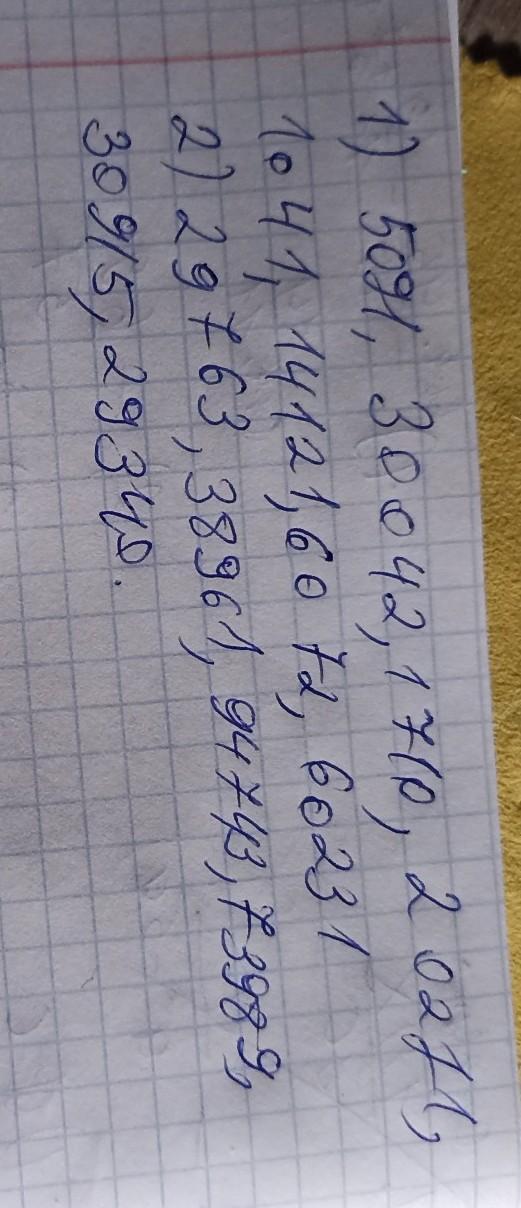 1) 5091, 30042, 1710, 20271,
1041, 14121, 6072, 60231
2) 29763, 38961, 94743, 73989,
30915, 29340.